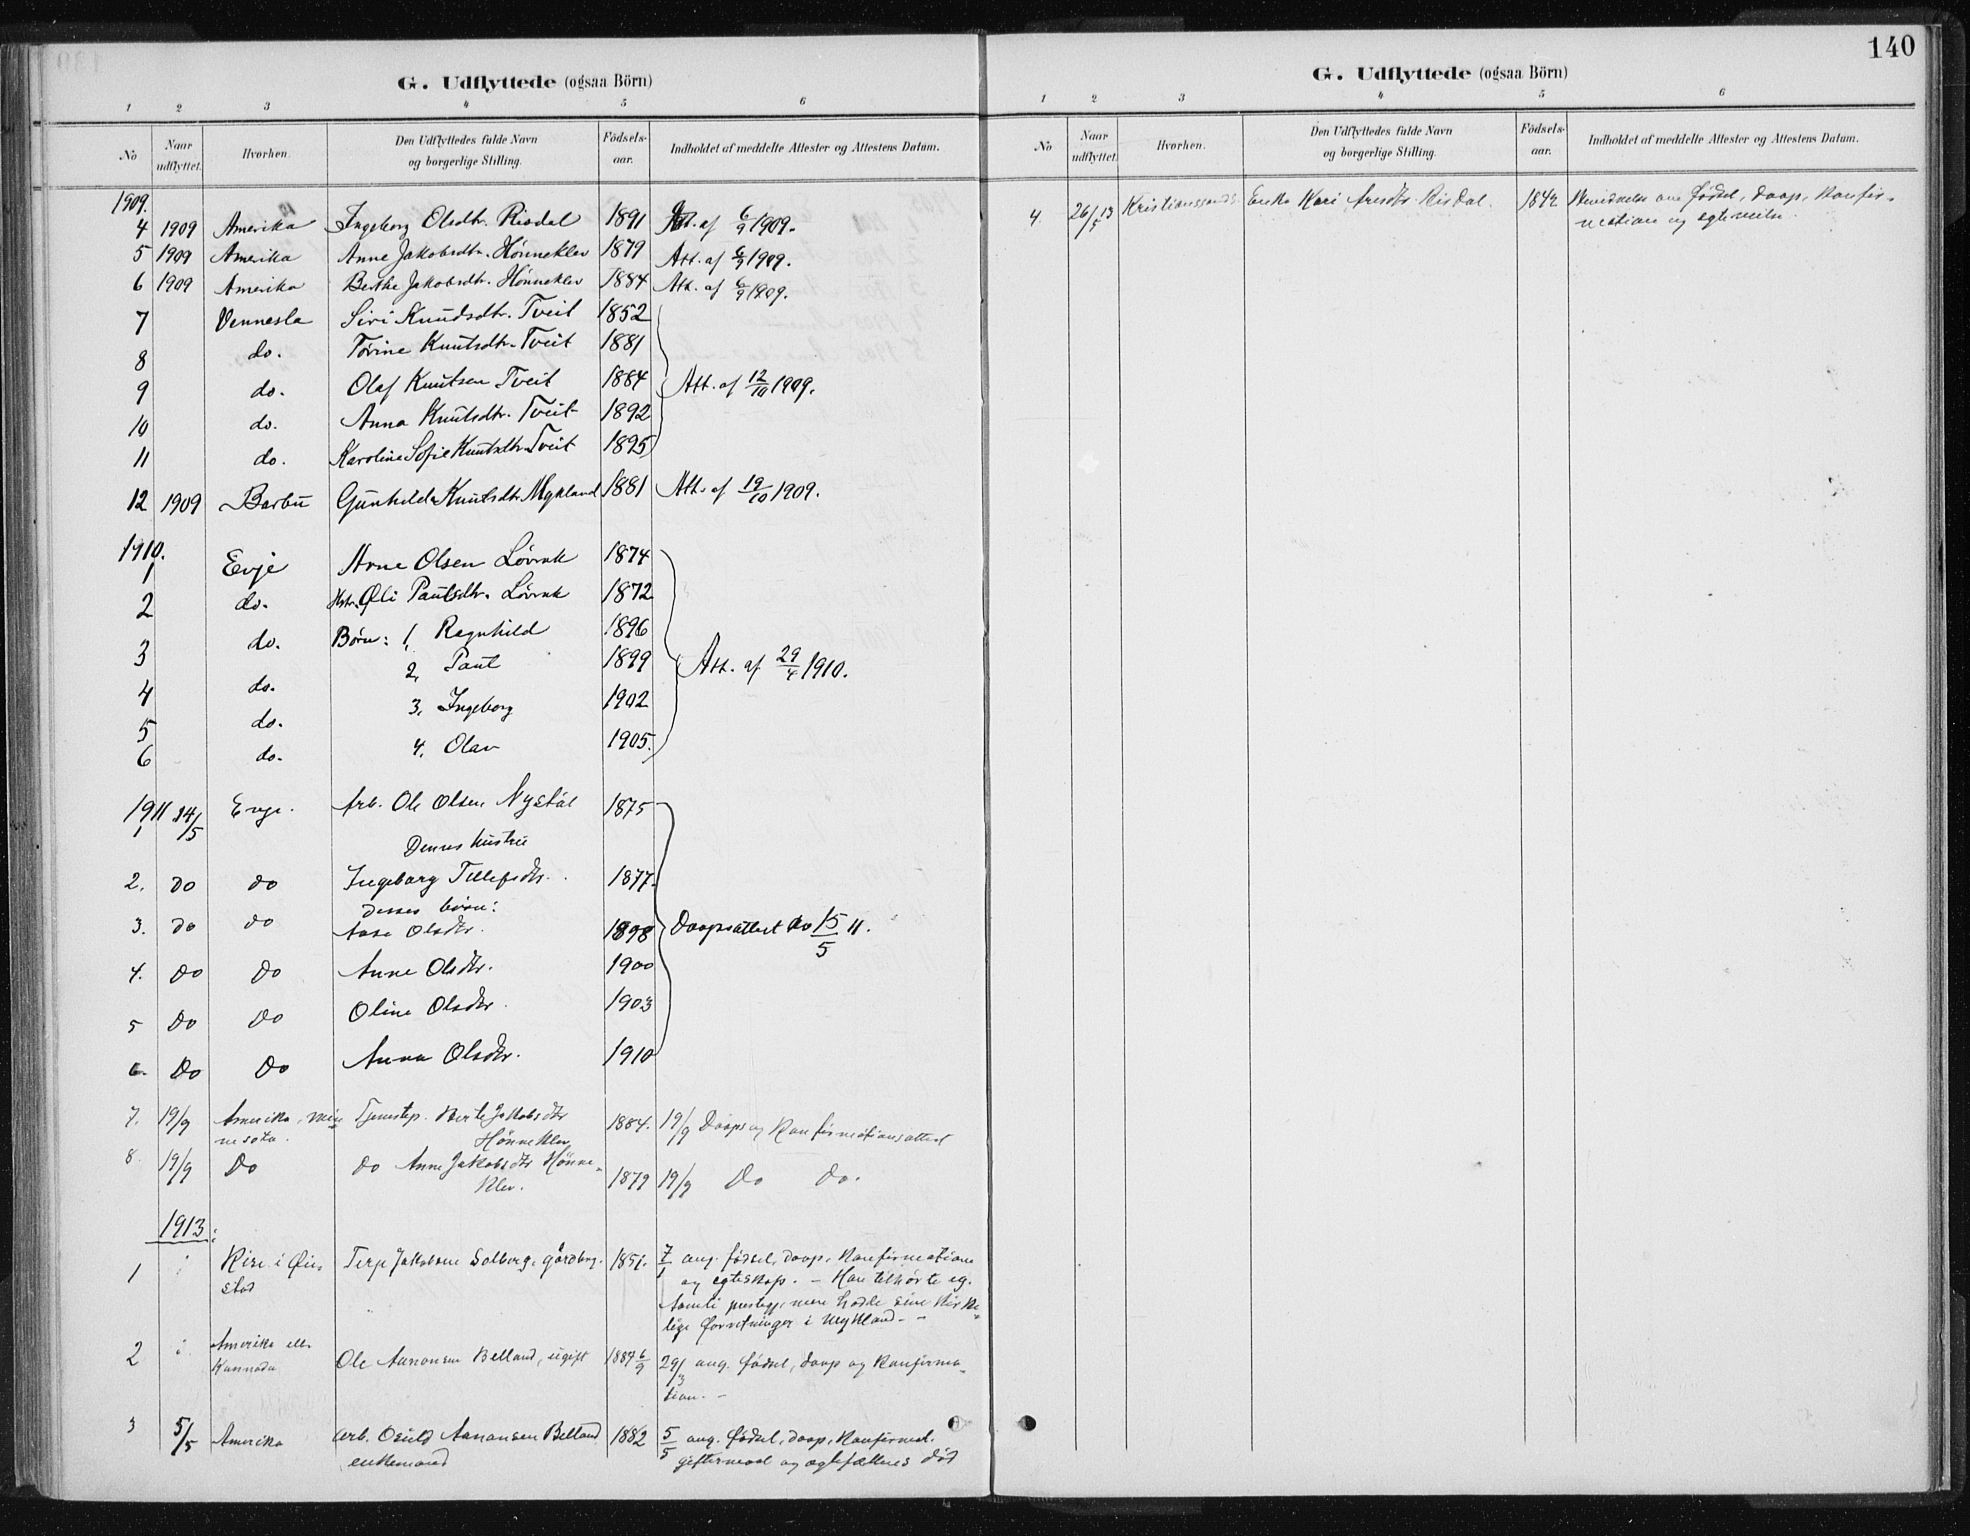 G. Udflyttede (ogsaa Börn)
1 2 3 4 5 6
No Naar udflyttet. Hvorhen. Den Udflyttedes fulde Navn og borgerlige Stilling. Födsels-aar. Indholdet af meddelte Attester og Attestens Datum.
1909.
4 1909 Amerika Ingeborg Olsdtr. Risdal 1891 Att. af 6/9 1909.
5 1909 Amerika Anne Jakobsdtr. Hønneklev 1879 Att. af 6/9 1909.
6 1909 Amerika Berthe Jakobsdtr. Hønneklev 1884 Att. af 6/9 1909.
7 Vennesla Siri Knudsdtr. Tveit 1852
8 do. Torine Knutsdtr. Tveit 1881
9 do. Olaf Knutsen Tveit 1884 Att. af 12/10 1909.
10 do. Anna Knutsdtr. Tveit 1892
11 do. Karoline Sofie Knutsdtr. Tveit 1895
12 1909 Barbu Gunhilde Knutsdtr. Mykland 1881 Att. af 19/10 1909.
1910.
1 Evje Arne Olsen Løvrak 1874
2 do. Hstr. Øli Paulsdtr. Løvrak 1872
3 do. Børn: 1, Ragnhild 1896
4 do. 2, Paul 1899 Att. af 29/4 1910.
5 do. 3, Ingeborg 1902
6 do. 4, Olav 1905.
1911
1 24/5 Evje. Arb. Ole Olsen Nystøl 1875
Dennes hustru
2. do do Ingeborg Tellefsdtr. 1877.
disses børn:
3. do do Aase Olsdtr. 1898 Daapsattest av 15/5 11.
4. Do Do Anne Olsdtr. 1900
5 Do Do Oline Olsdtr. 1903
6. Do Do Anna Olsdtr. 1910
7. 19/9 Amerika, Min Tjenestep. Berte Jakobsdtr 1884. 19/9 Daaps og Konfirmationsattest
nesota. Hønneklev
8. 19/9 Do do Anne Jakobsdtr Hønne-
klev. 1879 19/9 Do Do.
1913:
1 i Øie Terje Jakobsen Solberg, gårdbrg. 1851. 7/1 ang. fødsel, daap, konfirmation
stad og egteskap. – Han tilhørte eg.
prestegj. men hadde sine kirke-
lige forretninger i Mykland –
2 Amerika eller Ole Aanonsen Belland, ugift 1887 6/9 29/3 ang. fødsel, daap og konfirma-
Kannada tion. –
3 5/5 Amerika arb. Osuld Aanonsen Belland 1882 5/5 ang. fødsel, daap, konfirmat.
enkemand giftermaal og ægtefællens død
140
G. Udflyttede (ogsaa Börn)
1 2 3 4 5 6
No Naar udflyttet. Hvorhen. Den Udflyttedes fulde Navn og borgerlige Stilling. Födsels-aar. Indholdet af meddelte Attester og Attestens Datum.
4. 26/5 13 Kristianssand Enke Kari Risdal. 1842 om fødsel, daap, konfir-
mation og